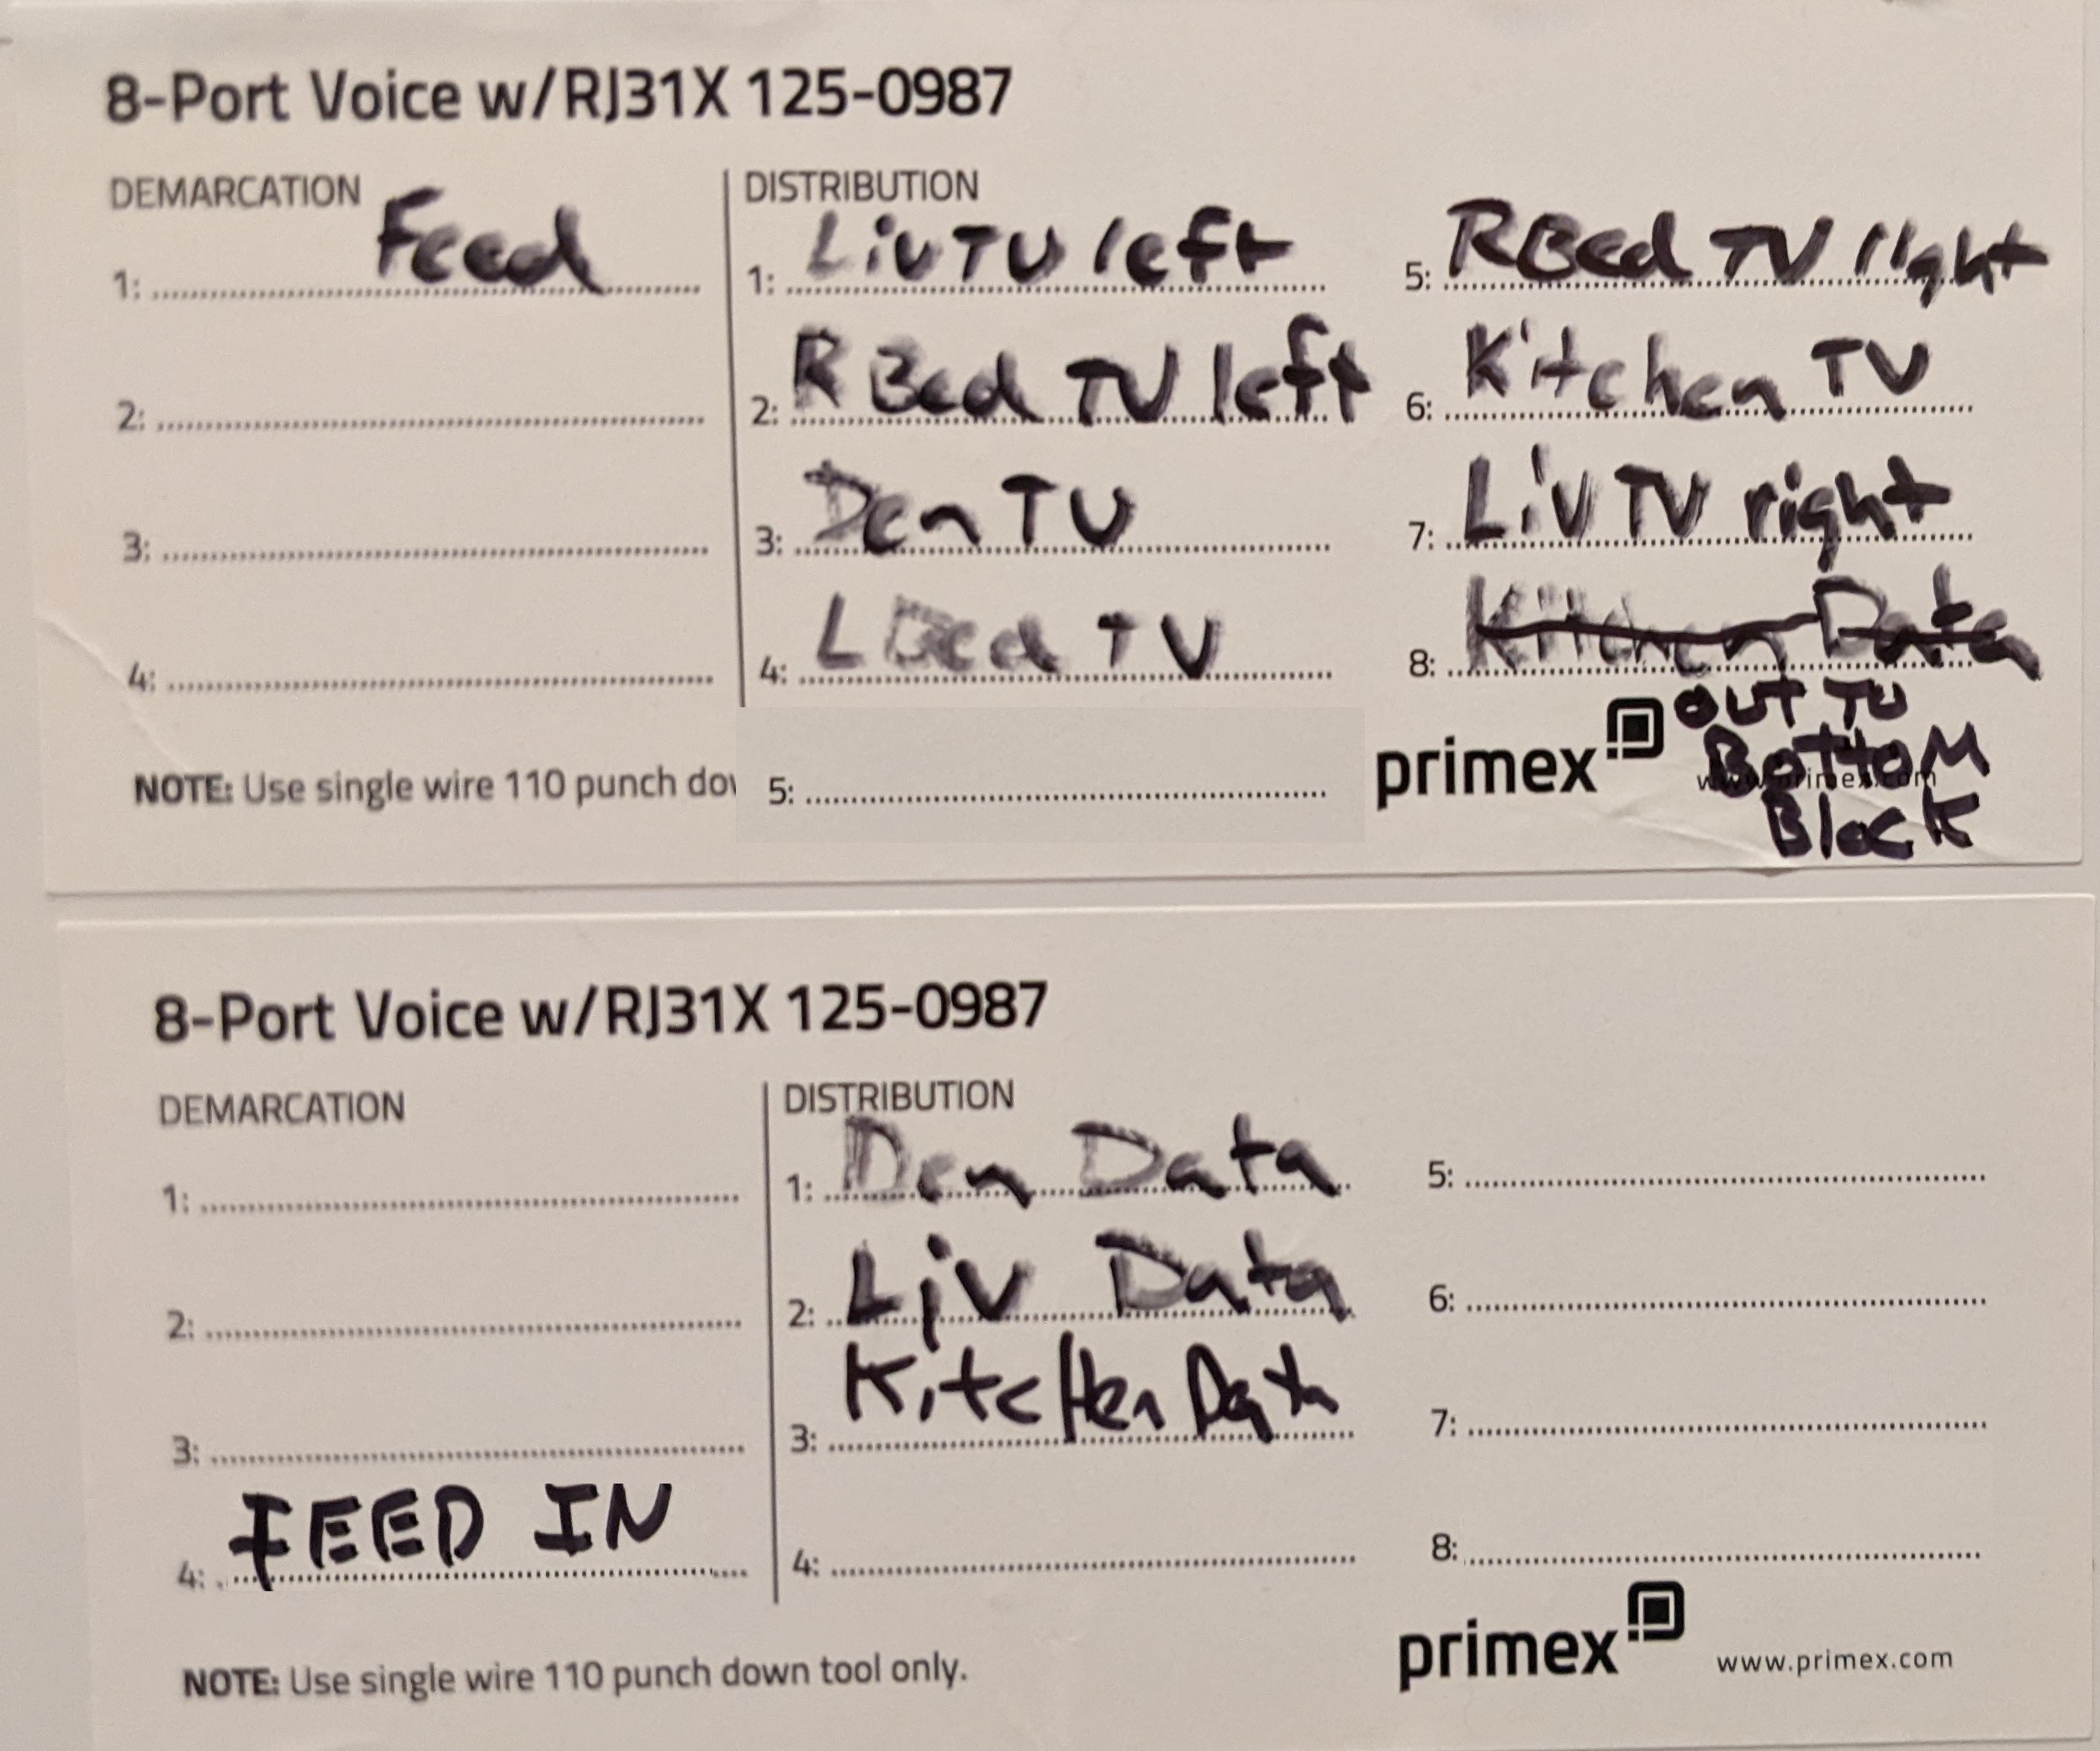 8-Port Voice w/RJ31X 125-0987
DEMARCATION
1: Feed
2:
3:
4:
DISTRIBUTION
1: Liv TV left
2: R Bed TV left
3: Den TV
4: L Bed TV
5:
5: R Bed TV right
6: Kitchen TV
7: Liv TV right
8: Kitchen Data
OUT TO
BOTTOM
BlocK
NOTE: Use single wire 110 punch dow
primex
www.primex.com
8-Port Voice w/RJ31X 125-0987
DEMARCATION
1:
2:
3:
4: FEED IN
DISTRIBUTION
1: Den Data
2: Liv Data
3: KitcHen Data
4:
5:
6:
7:
8:
NOTE: Use single wire 110 punch down tool only.
primex
www.primex.com